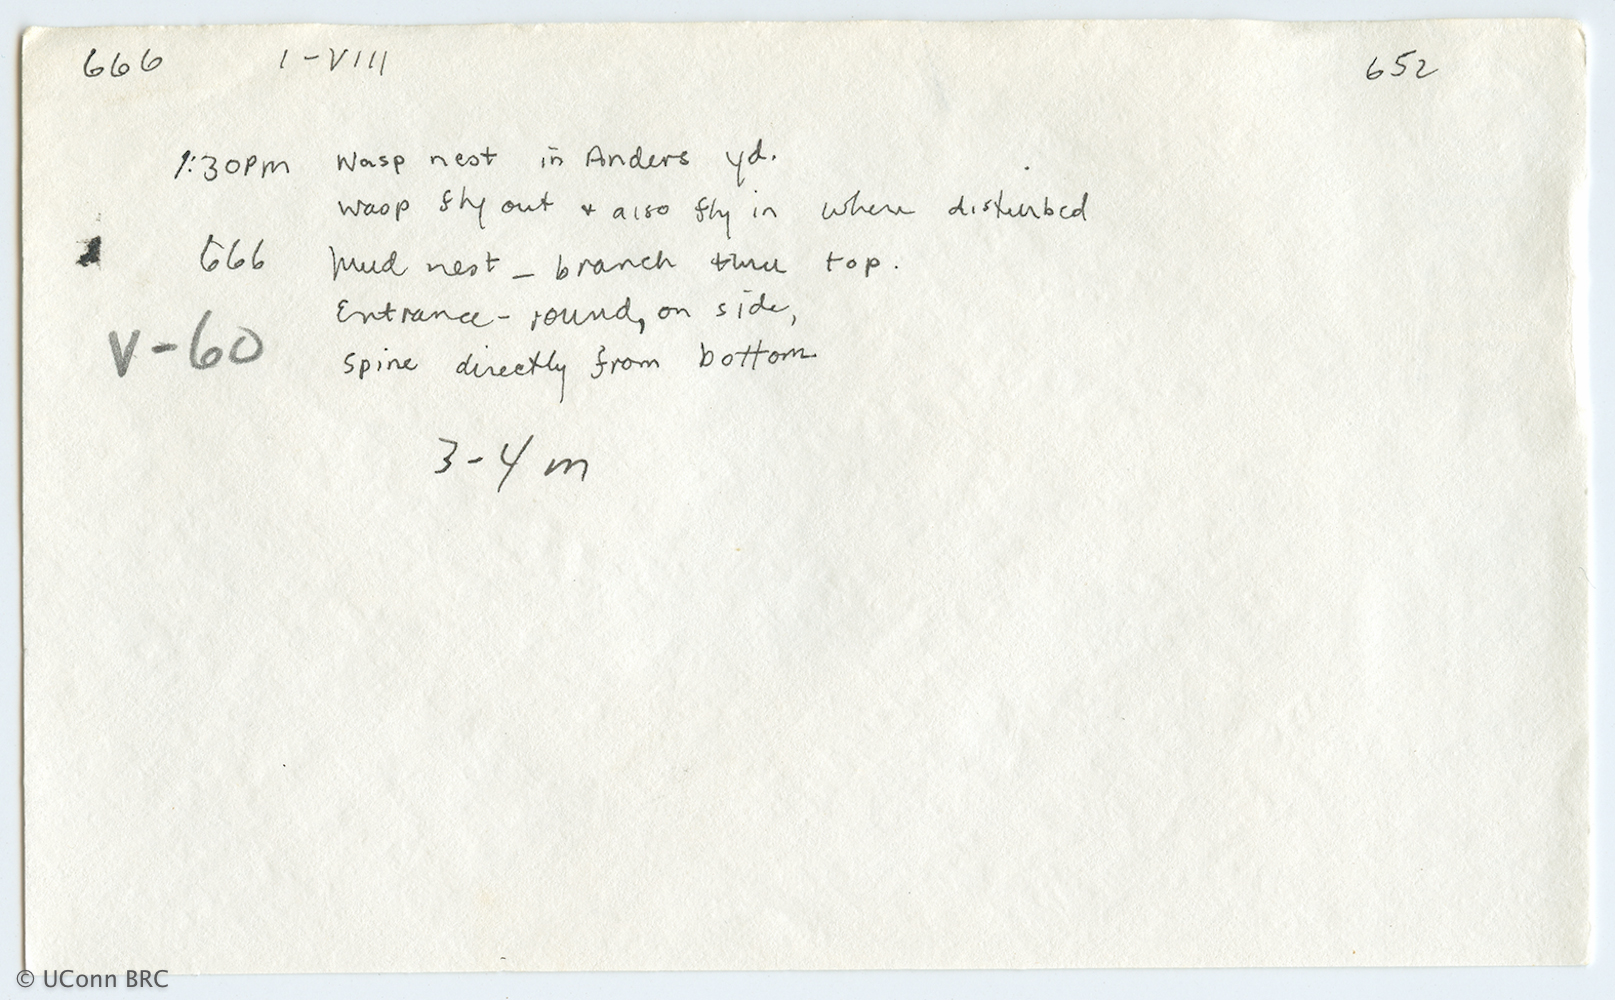 666 1-VIII 652
1:30pm Wasp nest in Anders yd.
wasp fly out + also fly in when disturbed
666 Mud nest - branch thru top.
Entrance - round, on side,
V-60 spine directly from bottom
3-4 m
© UConn BRC